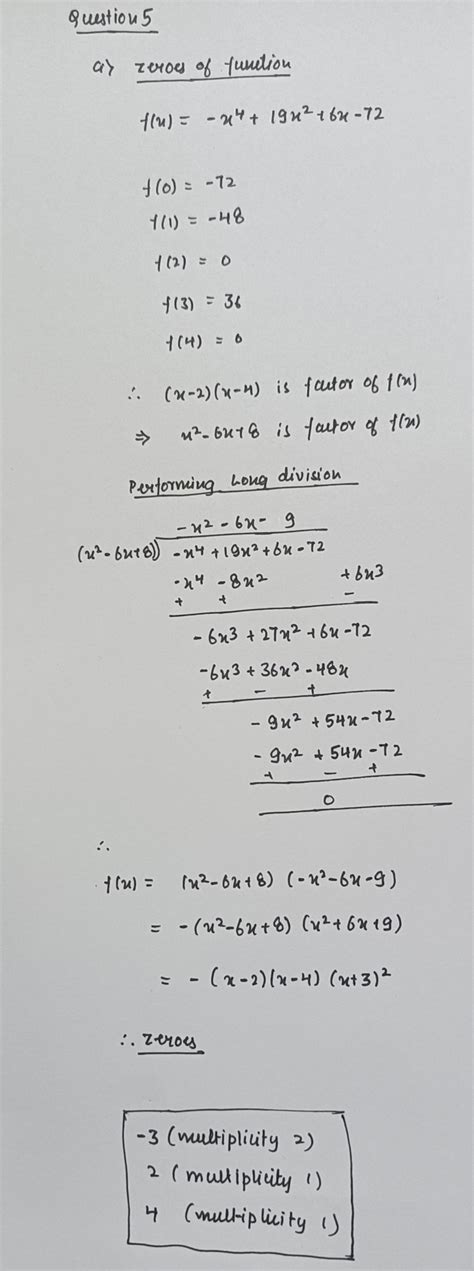 Question 5
a) zeroes of function
f(x) = -x⁴ + 19x² + 6x - 72
f(0) = -72
f(1) = -48
f(2) = 0
f(3) = 36
f(4) = 0
∴ (x-2)(x-4) is factor of f(x)
⇒ x² - 6x + 8 is factor of f(x)
Performing Long division
-x² - 6x - 9
(x² - 6x + 8)) -x⁴ + 19x² + 6x - 72
-x⁴ - 8x² + 6x³
+ + -
-6x³ + 27x² + 6x - 72
-6x³ + 36x² - 48x
+ - +
-9x² + 54x - 72
-9x² + 54x - 72
+ - +
0
∴
f(x) = (x² - 6x + 8) (-x² - 6x - 9)
= -(x² - 6x + 8) (x² + 6x + 9)
= - (x-2)(x-4) (x+3)²
∴ zeroes
-3 (multiplicity 2)
2 (multiplicity 1)
4 (multiplicity 1)